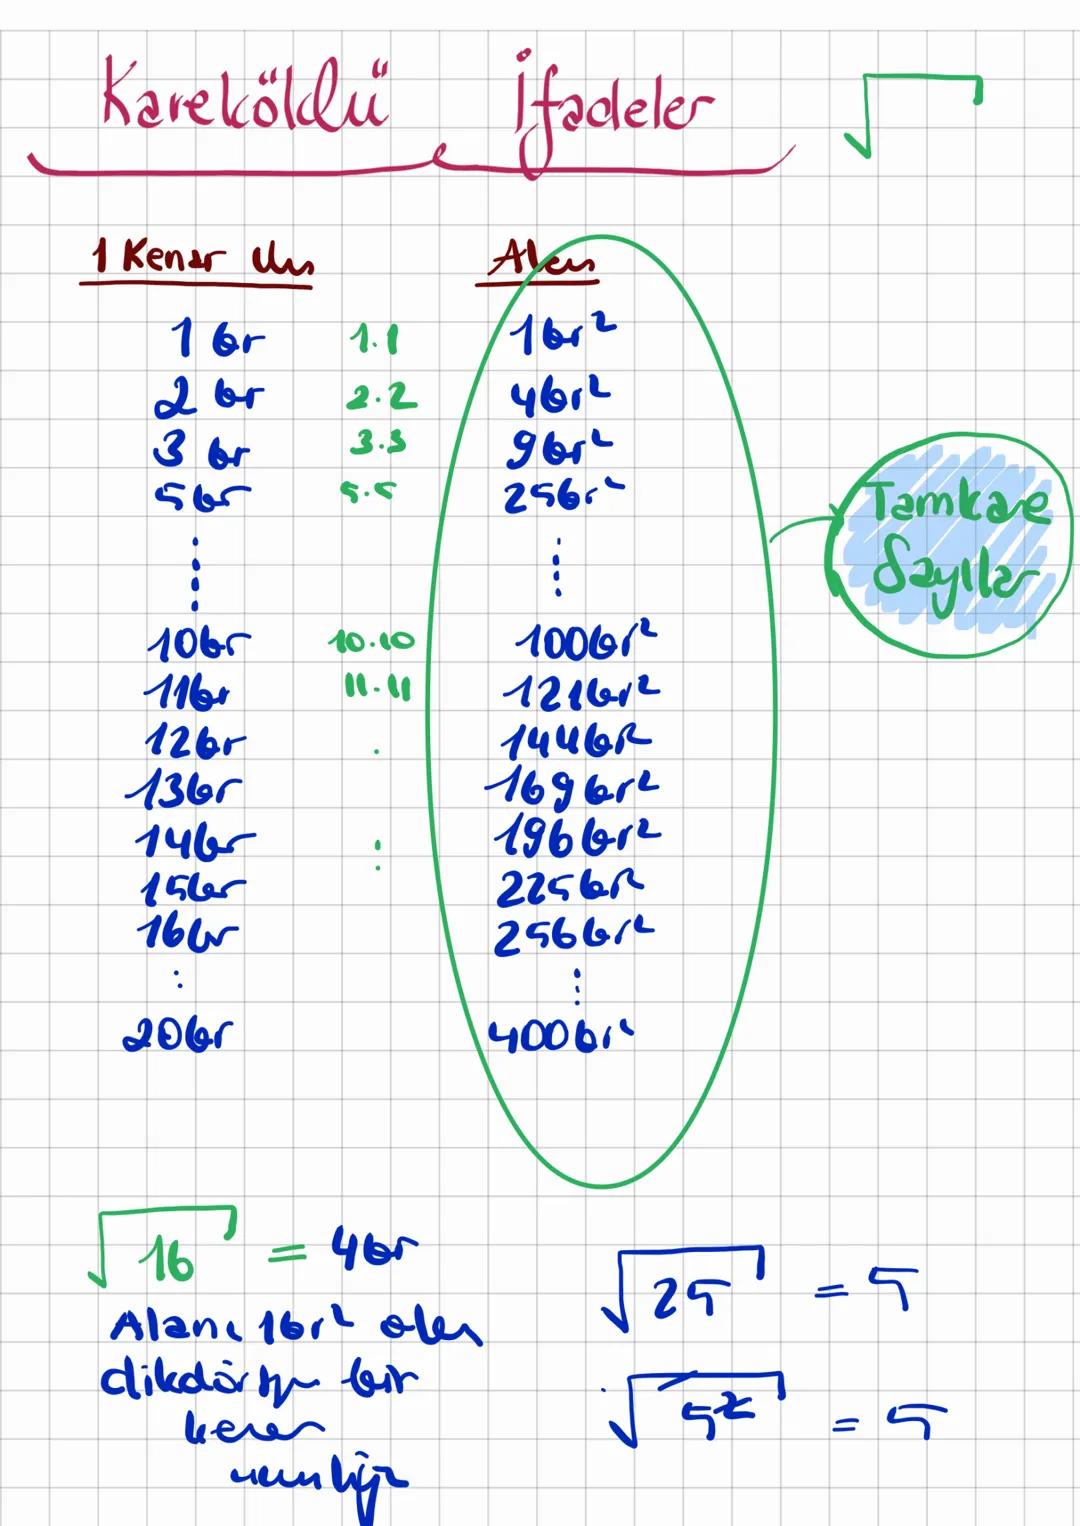 Kareköklü İfadeler √
1 Kenar Uzn Alan
1 br 1.1 1br²
2 br 2.2 4br²
3 br 3.3 9br²
5br 5.5 25br²
Tamkare
Sayılar
10br 10.10 100br²
11br 11.11 121br²
12br . 144br²
13br 169br²
14br : 196br²
15br 225br²
16br 256br²
: ⋮
20br 400br²
√16 = 4br
Alanı 16r² olan
dikdörtgen bir
kenar
uzunluğu
√25 = 5
√5² = 5